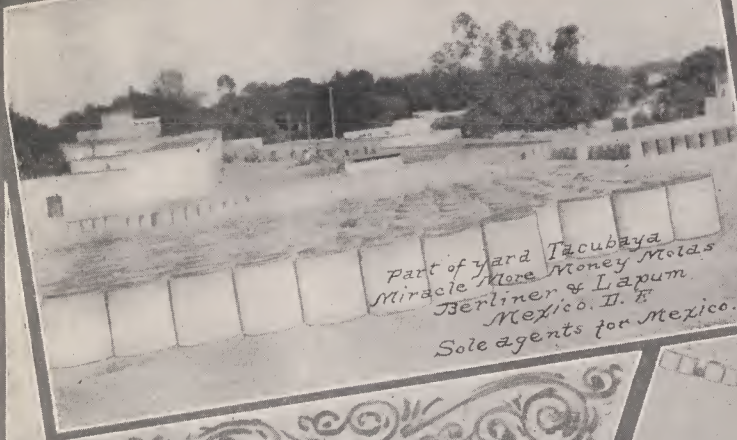 Part of yard Tacubaya
Miracle More Money Molds
Berliner & Lapum
Mexico. D. F.
Sole agents for Mexico.